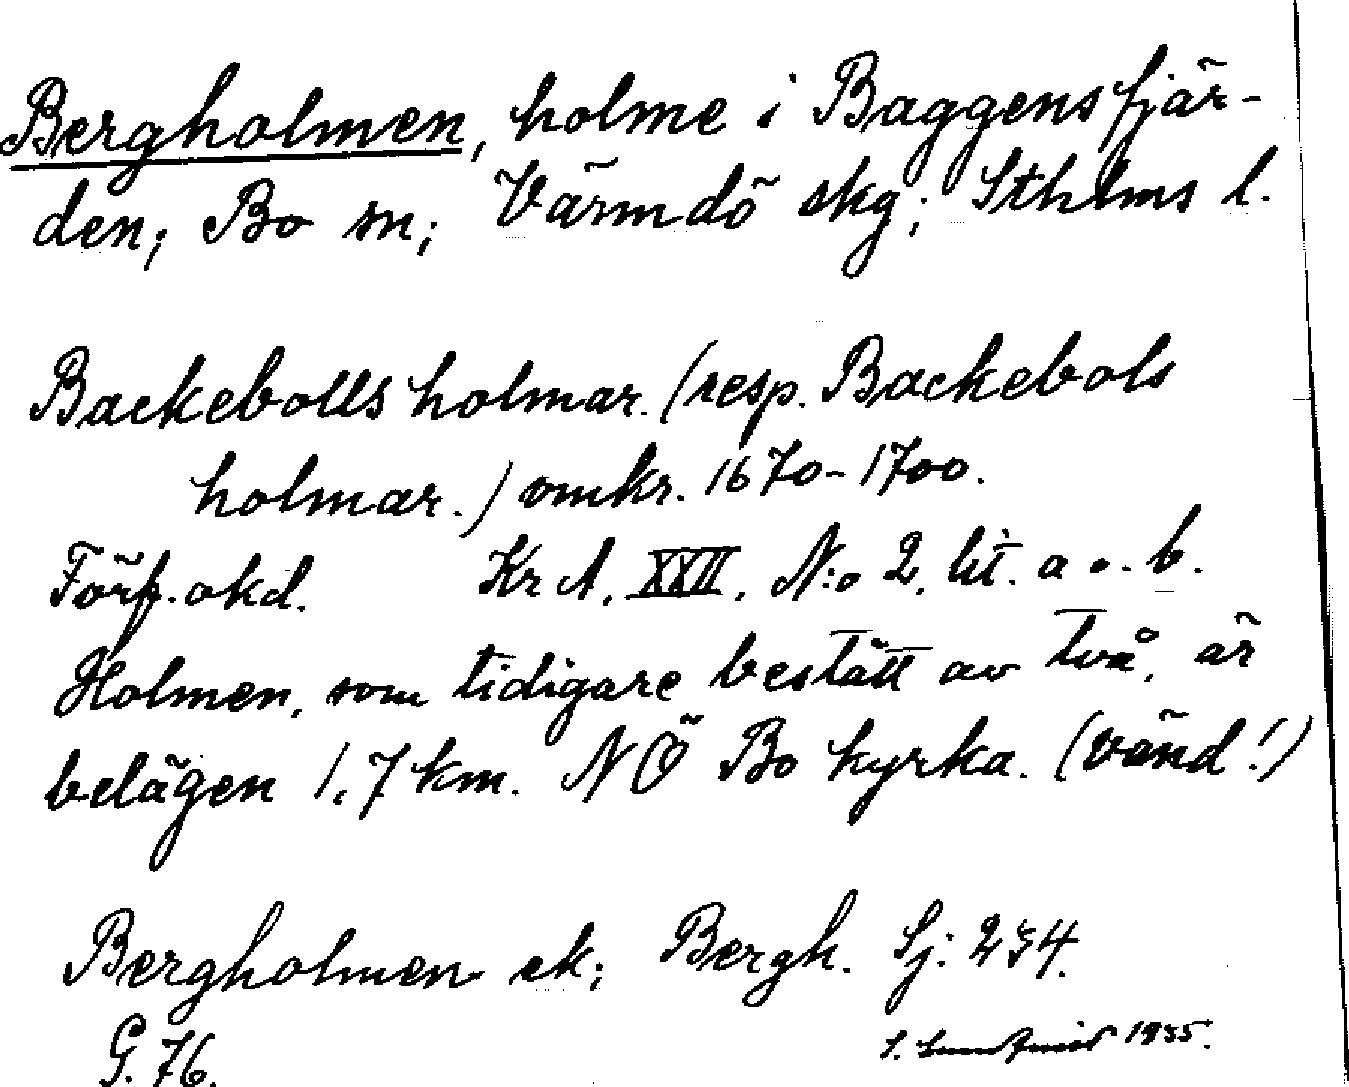 Bergholmen, holme i Baggensfjär-
den; Bo sn; Värmdö skg; Sthlms l.
Backebollsholmar. (resp. Backebols
holmar.) omkr. 1670-1700.
Förf. okd. Kr A. XXII. N:o 2. lit. a o. b.
Holmen, som tidigare bestått av två, är
belägen 1,7 km. NÖ Bo kyrka. (vänd!)
Bergholmen ek; Bergh. Sj: 234.
G. 76.
S. 1935.